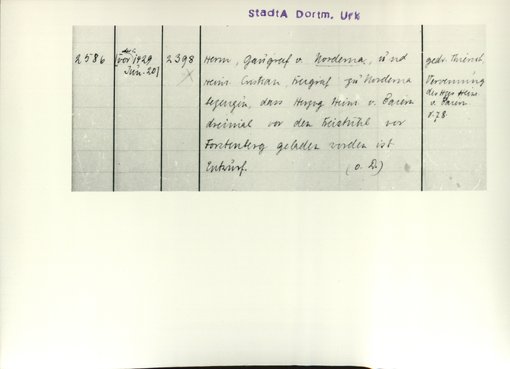 StadtA Dortm. Urk
2586
[vor 1429
Jun. 20]
2398
Herm, Gaugraf v. Norderna, und
Heinr. Freigraf zu Norderna
bezeugen, dass Herzog Heinr. v. Baiern
dreimal vor den Freistuhl vor
Fürstenberg geladen worden ist
Entwurf. (o. D.)
gedr. Thiersch
Vervemung
des Hzgs Heinr.
v. Baiern
S. 78